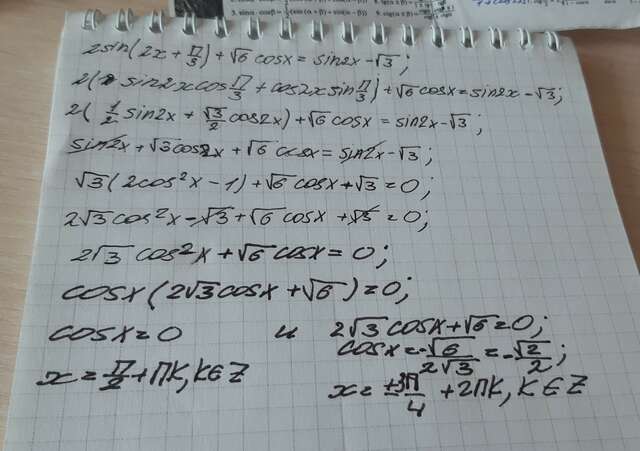 2sin(2x + π/3) + √6 cosx = sin2x - √3;
2(sin2x cos π/3 + cos2x sin π/3) + √6 cosx = sin2x - √3;
2(1/2 sin2x + √3/2 cos2x) + √6 cosx = sin2x - √3;
sin2x + √3 cos2x + √6 cosx = sin2x - √3;
√3(2cos²x - 1) + √6 cosx + √3 = 0;
2√3 cos²x - √3 + √6 cosx + √3 = 0;
2√3 cos²x + √6 cosx = 0;
cosx(2√3 cosx + √6) = 0;
cosx = 0 и 2√3 cosx + √6 = 0;
cosx = -√6/2√3 = -√2/2;
x = π/2 + πk, k∈Z
x = ±3π/4 + 2πk, k∈Z